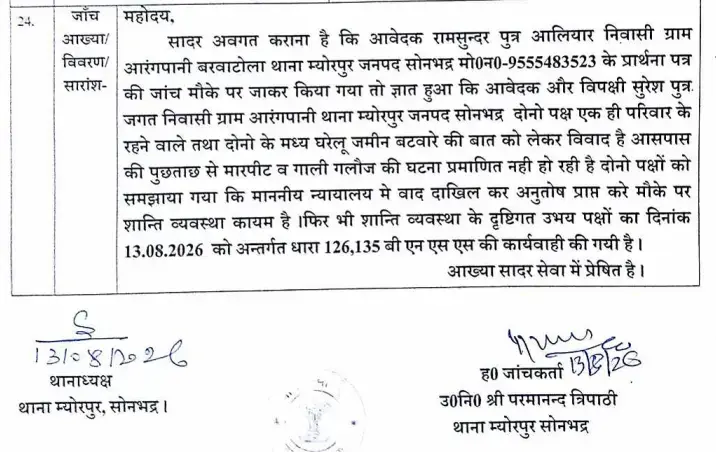 24.
जाँच
आख्या/
विवरण/
सारांश-
महोदय,
सादर अवगत कराना है कि आवेदक रामसुन्दर पुत्र आलियार निवासी ग्राम
आरंगपानी बरवाटोला थाना म्योरपुर जनपद सोनभद्र मो0न0-9555483523 के प्रार्थना पत्र
की जांच मौके पर जाकर किया गया तो ज्ञात हुआ कि आवेदक और विपक्षी सुरेश पुत्र
जगत निवासी ग्राम आरंगपानी थाना म्योरपुर जनपद सोनभद्र दोनो पक्ष एक ही परिवार के
रहने वाले तथा दोनो के मध्य घरेलू जमीन बटवारे की बात को लेकर विवाद है आसपास
की पुछताछ से मारपीट व गाली गलौज की घटना प्रमाणित नही हो रही है दोनो पक्षों को
समझाया गया कि माननीय न्यायालय मे वाद दाखिल कर अनुतोष प्राप्त करे मौके पर
शान्ति व्यवस्था कायम है ।फिर भी शान्ति व्यवस्था के दृष्टिगत उभय पक्षों का दिनांक
13.08.2026 को अन्तर्गत धारा 126,135 बी एन एस एस की कार्यवाही की गयी है।
आख्या सादर सेवा में प्रेषित है।
13/08/2026
थानाध्यक्ष
थाना म्योरपुर, सोनभद्र।
13/8/26
ह0 जांचकर्ता
उ0नि0 श्री परमानन्द त्रिपाठी
थाना म्योरपुर सोनभद्र